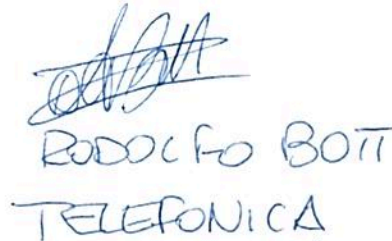 RODOLFO BOTT
TELEFONICA